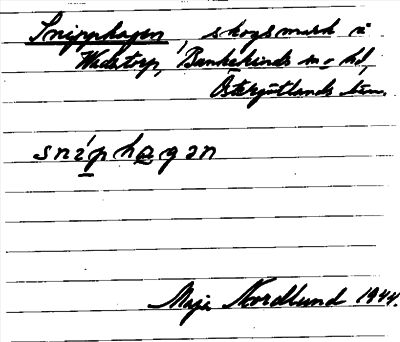 Snipphagen, skogsmark i
Wedstorp, Bankekinds sn o hd,
Östergötlands län.
sníphagən
Maja Nordlund 1944.